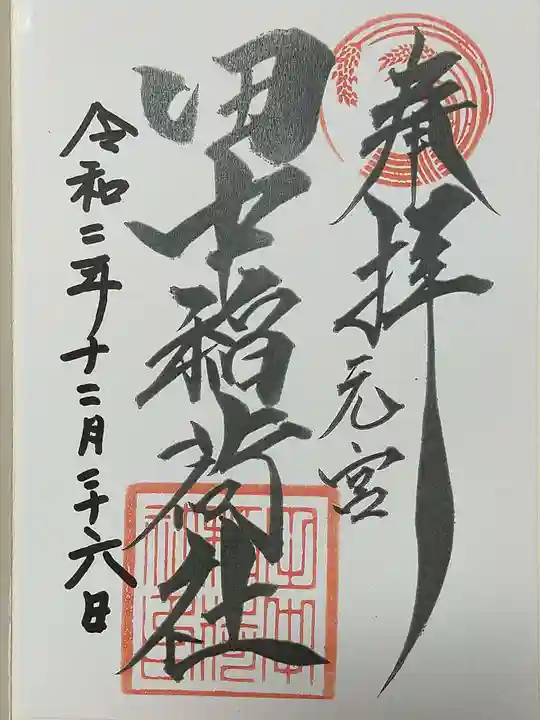 奉拝
元宮
田中稲荷社
令和二年十二月二十六日